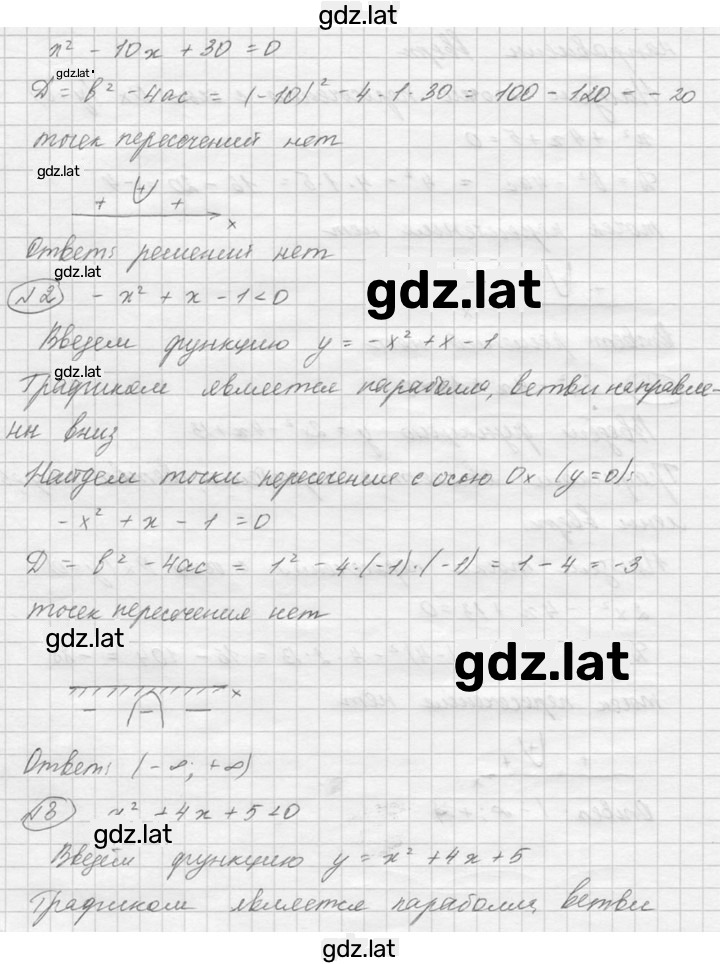 gdz.lat
x² - 10x + 30 = 0
gdz.lat
D = b² - 4ac = (-10)² - 4·1·30 = 100 - 120 = -20
точек пересечений нет
gdz.lat
+ + + x
Ответ: решений нет
gdz.lat
№2 - x² + x - 1 < 0
gdz.lat
Введем функцию y = -x² + x - 1
gdz.lat
Графиком является парабола, ветви направле-
ны вниз
Найдем точки пересечения с осью Ox (y=0):
- x² + x - 1 = 0
D = b² - 4ac = 1² - 4·(-1)·(-1) = 1 - 4 = -3
точек пересечения нет
gdz.lat
gdz.lat
x
- - -
Ответ: (-∞; +∞)
№3 x² + 4x + 5 < 0
gdz.lat
Введем функцию y = x² + 4x + 5
Графиком является парабола, ветви
gdz.lat